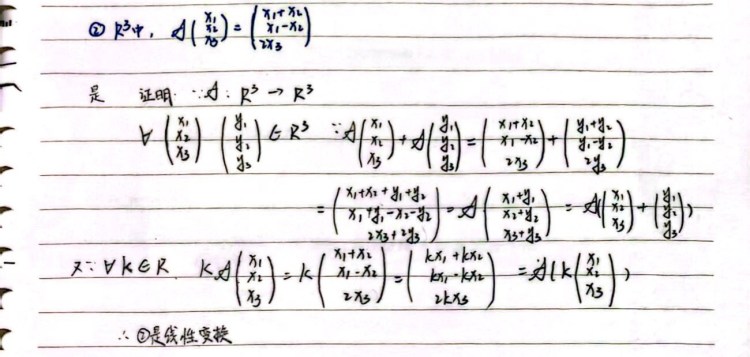 ② R³中, 𝒜(x₁ x₂ x₃) = (x₁+x₂ x₁-x₂ 2x₃)
是 证明: ∵𝒜: R³ → R³
∀ (x₁ x₂ x₃) (y₁ y₂ y₃) ∈ R³ ∵𝒜(x₁ x₂ x₃) + 𝒜(y₁ y₂ y₃) = (x₁+x₂ x₁-x₂ 2x₃) + (y₁+y₂ y₁-y₂ 2y₃)
= (x₁+x₂+y₁+y₂ x₁+y₁-x₂-y₂ 2x₃+2y₃) = 𝒜(x₁+y₁ x₂+y₂ x₃+y₃) = 𝒜((x₁ x₂ x₃) + (y₁ y₂ y₃))
又∵∀k∈R. k𝒜(x₁ x₂ x₃) = k(x₁+x₂ x₁-x₂ 2x₃) = (kx₁+kx₂ kx₁-kx₂ 2kx₃) = 𝒜(k(x₁ x₂ x₃))
∴②是线性变换